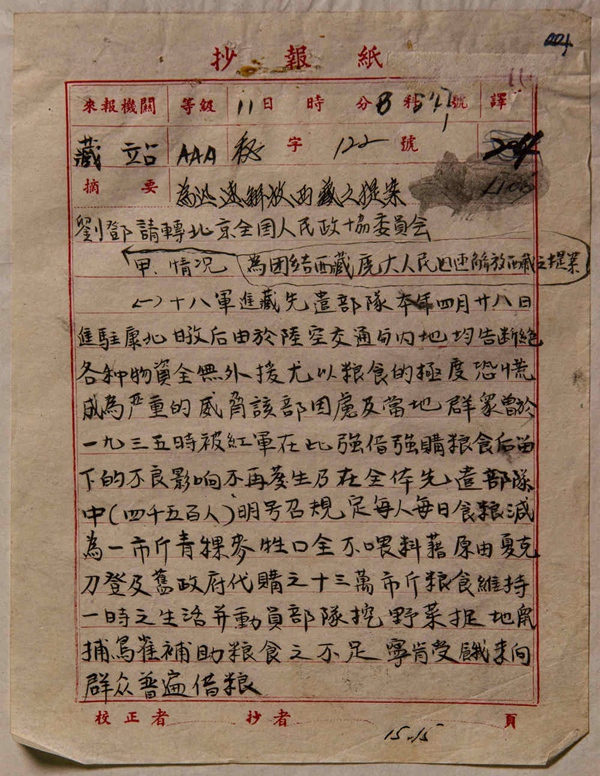 抄報紙
來報機關 等級 11日 時 分 8 科 號 譯
藏站 AAA 秘 字 122 號
摘要 為迅速解放西藏之提案
劉鄧請轉北京全国人民政协委員会
甲.情况 為团结西藏廣大人民迅速解放西藏之提案
(一)十八軍進藏先遣部隊本年四月廿八日
進駐康北 后由於陸空交通与内地均告断絕
各种物資全無外援尤以粮食的極度恐慌
成為严重的威脅該部因慮及當地群衆曾於
一九三五時被紅軍在此強借強購粮食后留
下的不良影响不再發生乃在全体先遣部隊
中(四千五百人)明号召規定每人每日食粮減
為一市斤青稞麥牲口全不喂料藉原由夏克
刀登及舊政府代購之十三萬市斤粮食維持
一時之生活并動員部隊挖野菜捉地鼠
捕鳥雀補助粮食之不足寧肯受餓未向
群众普遍借粮
校正者 抄者 15.15 頁